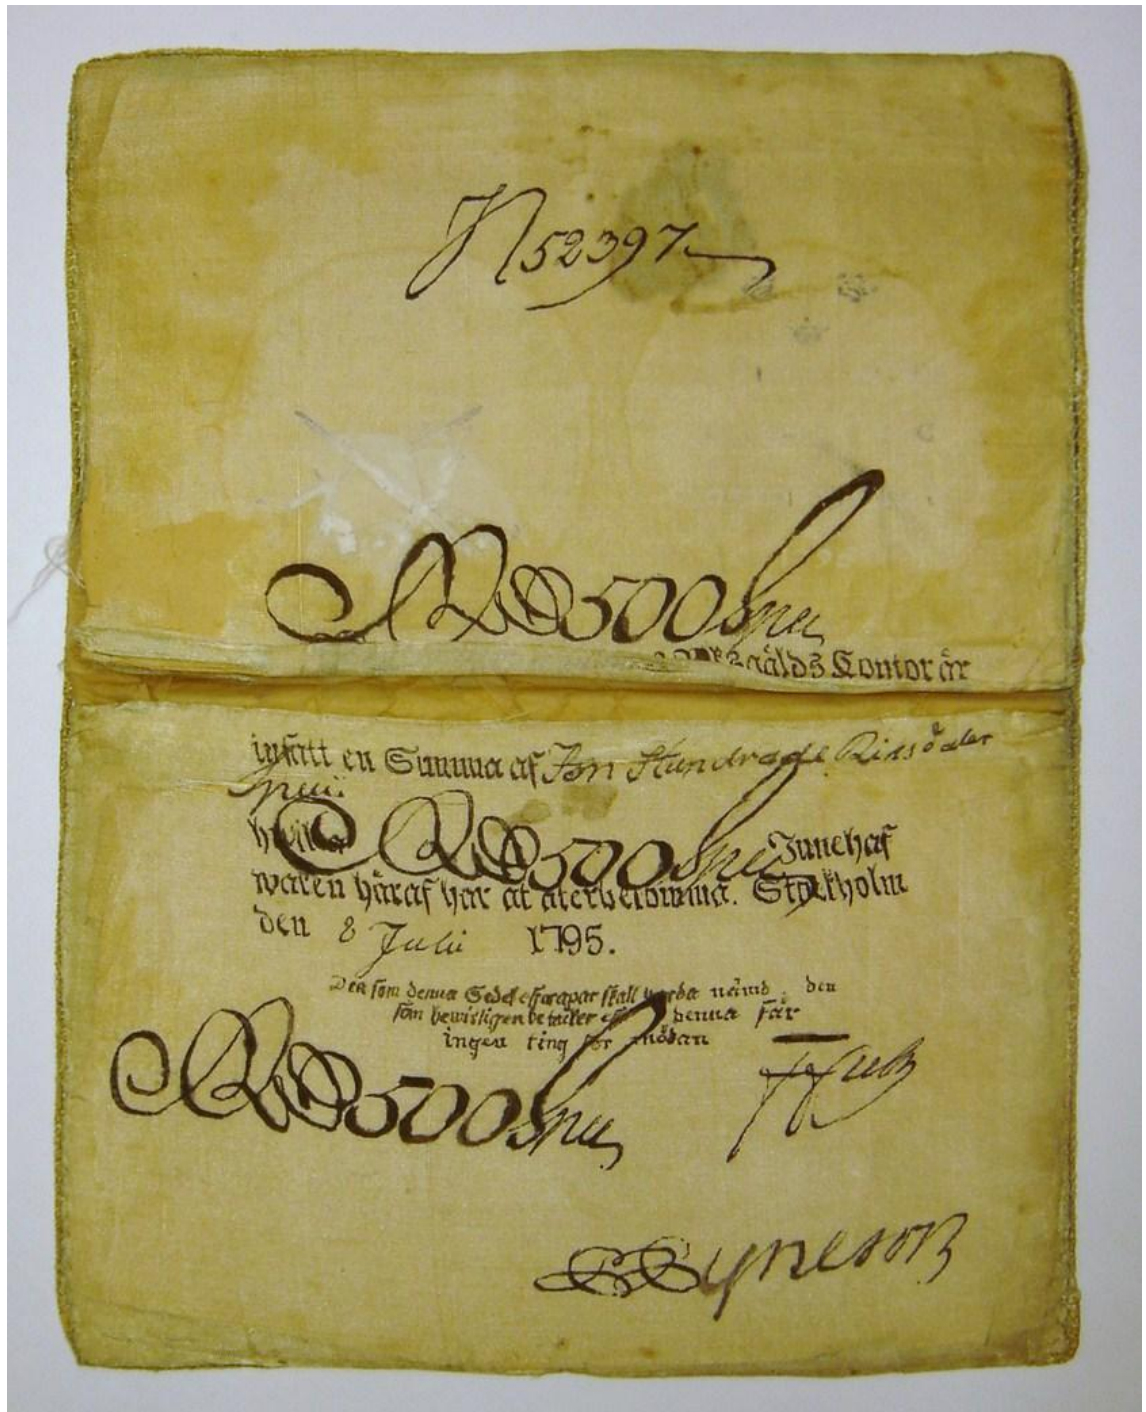 N 52397
RD 500 Spec
gälds Kontor är
insatt en Summa af Fem Hundrade Riksdaler
Spec:
RD 500 Spec Innehaf
waren häraf har at återbekomma. Stockholm
den 8 Julii 1795.
Den som denna Sedel efterapar skall warda nämd den
som bewisligen denna får
ingen ting för mödan
RD 500 Spec